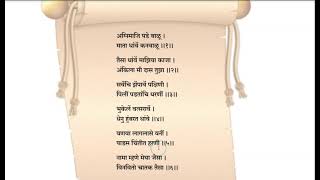 अग्निमाजि पडे बाळू ।
माता धांवें कनवाळू ॥१॥
तैसा धांवें माझिया काजा ।
अंकिला मी दास तुझा ॥२॥
सवेंचि झेंपावें पक्षिणी ।
पिलीं पडतांचि धरणीं ॥३॥
भुकेलें वत्सरावें ।
धेनु हुंबरत धांवे ॥४॥
वणवा लागलासे वनीं ।
पाडस चिंतीत हरणी ॥५॥
नामा म्हणे मेघा जैसा ।
विनवितो चातक तैसा ॥६॥